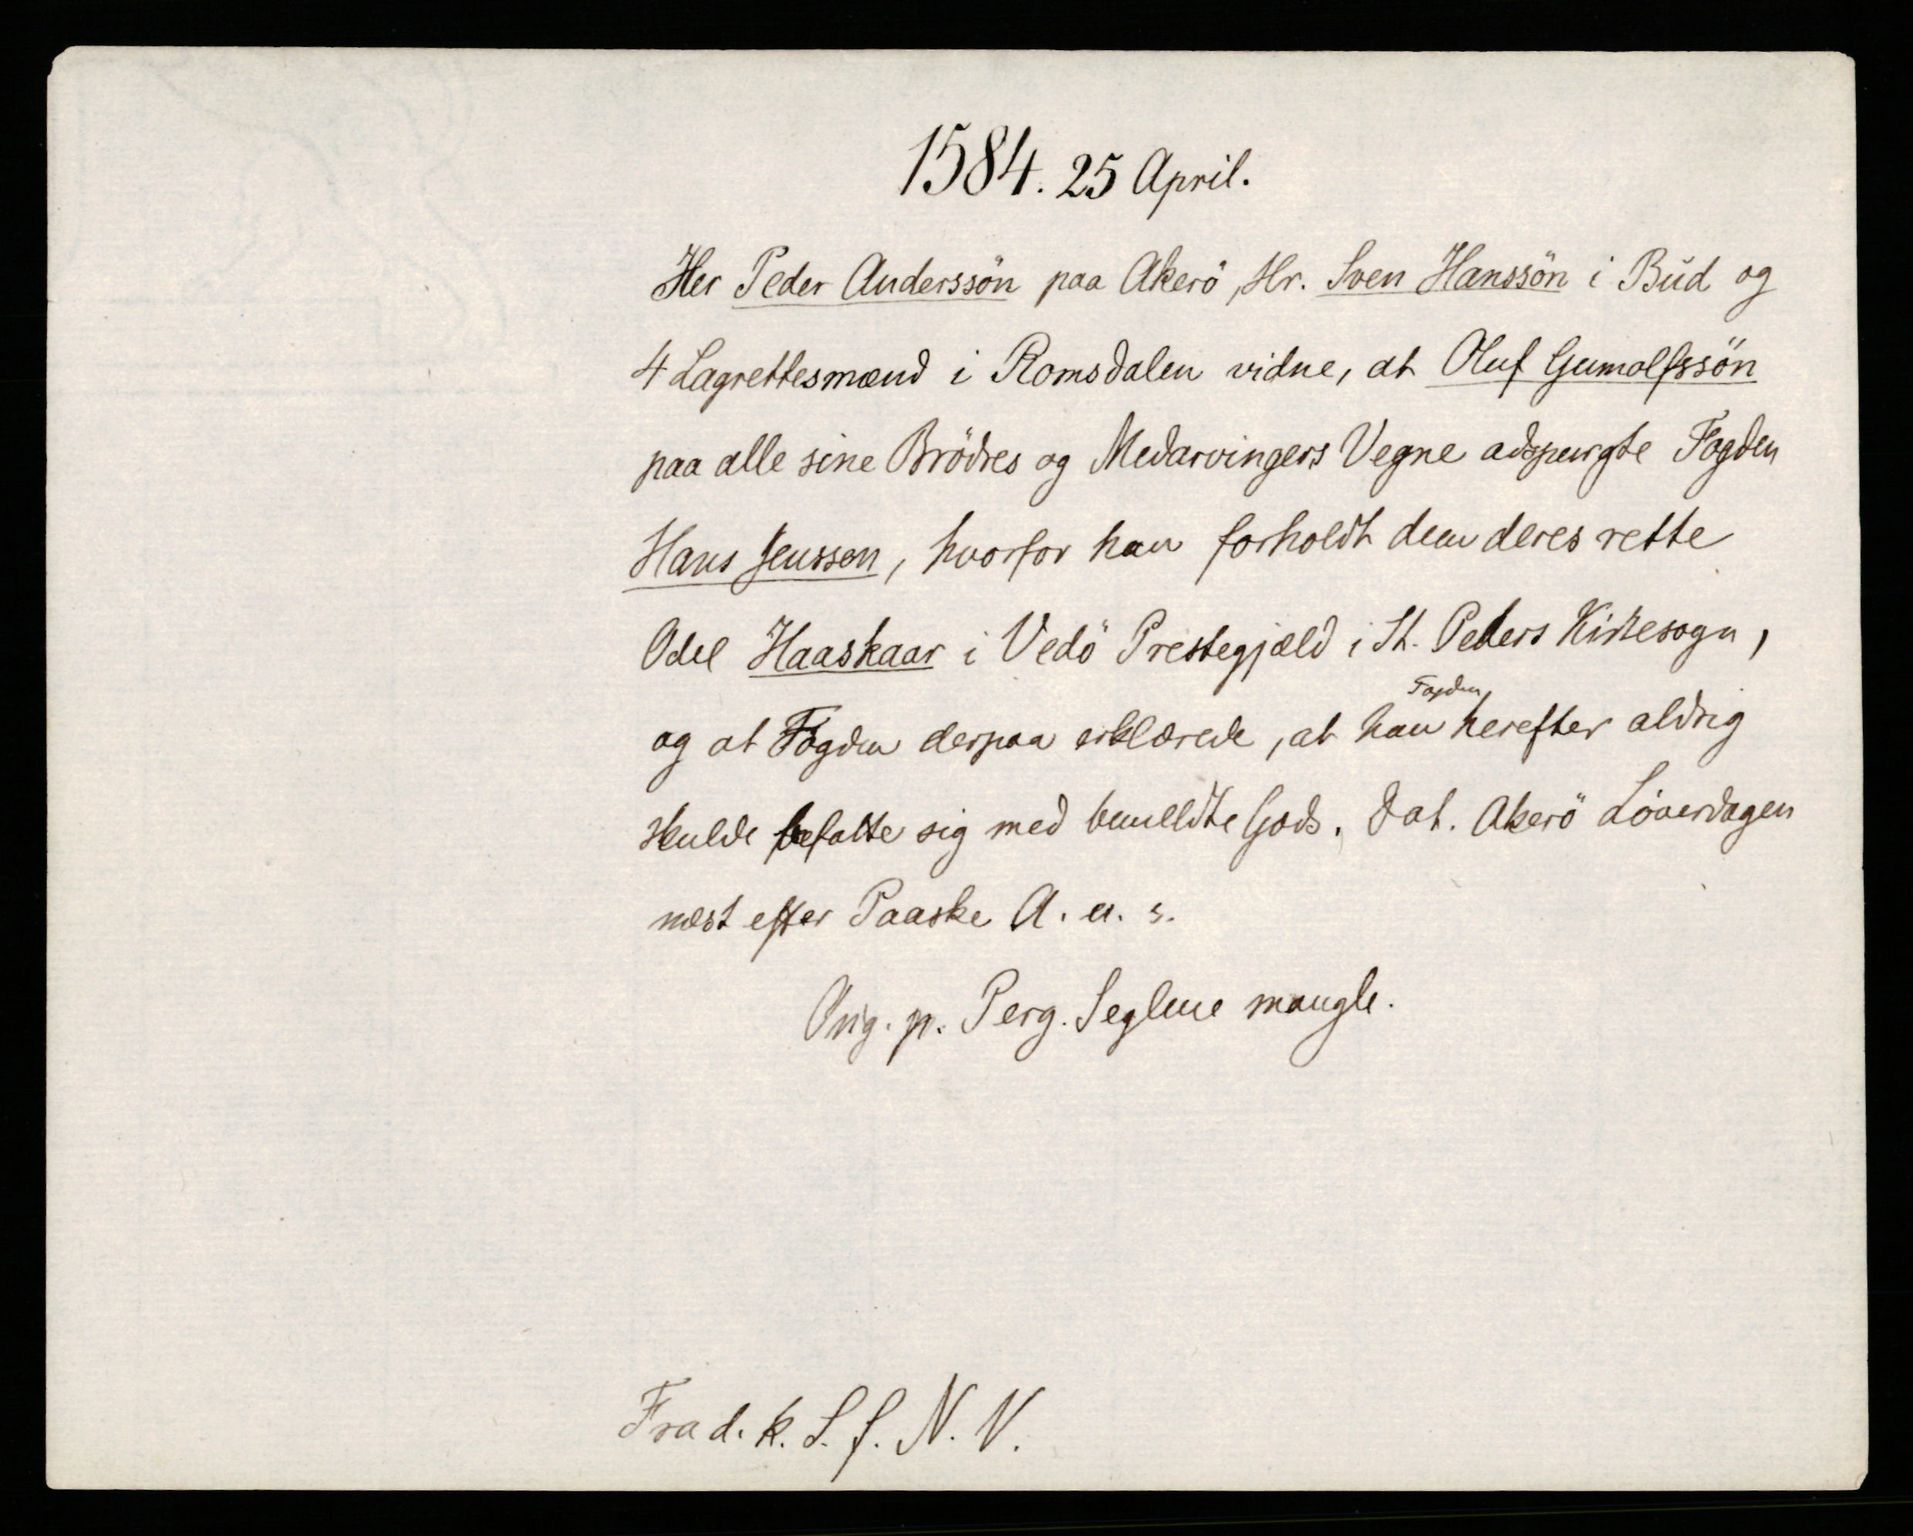 1584. 25 April.
Her Peder Anderssön paa Akerö, Hr. Sven Hanssön i Bud og
4 Lagrettesmænd i Romsdalen vidne, at Oluf Gumolfssön
paa alle sine Brödres og Medarvingers Vegne adspurgte Fogden
Hans Jenssen, hvorfor han forholdt dem deres rette
Odel Haaskaar i Vedö Prestegjæld i St. Peders Kirkesogn,
og at Fogden derpaa erklærede, at han Fogden herefter aldrig
skulde befatte sig med bemeldte Gods. Dat. Akerö Löverdagen
næst efter Paaske A. u. s.
Orig. p. Perg. Seglene mangle.
Fra d. k. S. f. N. V.